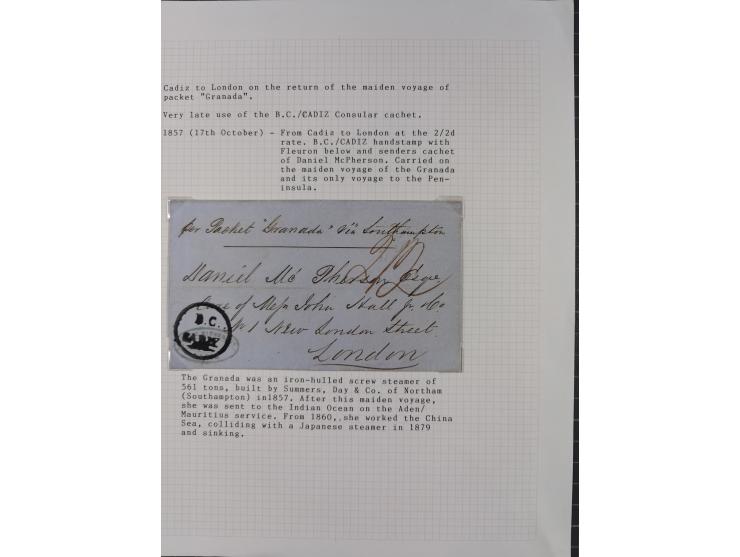 Cadiz to London on the return of the maiden voyage of
packet "Granada".
Very late use of the B.C./CADIZ Consular cachet.
1857 (17th October) - From Cadiz to London at the 2/2d
rate. B.C./CADIZ handstamp with
Fleuron below and senders cachet
of Daniel McPherson. Carried on
the maiden voyage of the Granada
and its only voyage to the Pen-
insula.
per Packet "Granada" via Southampton
Daniel Mc Pherson Esqre
Care of Mess John Hall Jr. & Co
No 1 New London Street.
London
B.C.
CADIZ
The Granada was an iron-hulled screw steamer of
561 tons, built by Summers, Day & Co. of Northam
(Southampton) in1857. After this maiden voyage,
she was sent to the Indian Ocean on the Aden/
Mauritius service. From 1860, she worked the China
Sea, colliding with a Japanese steamer in 1879
and sinking.